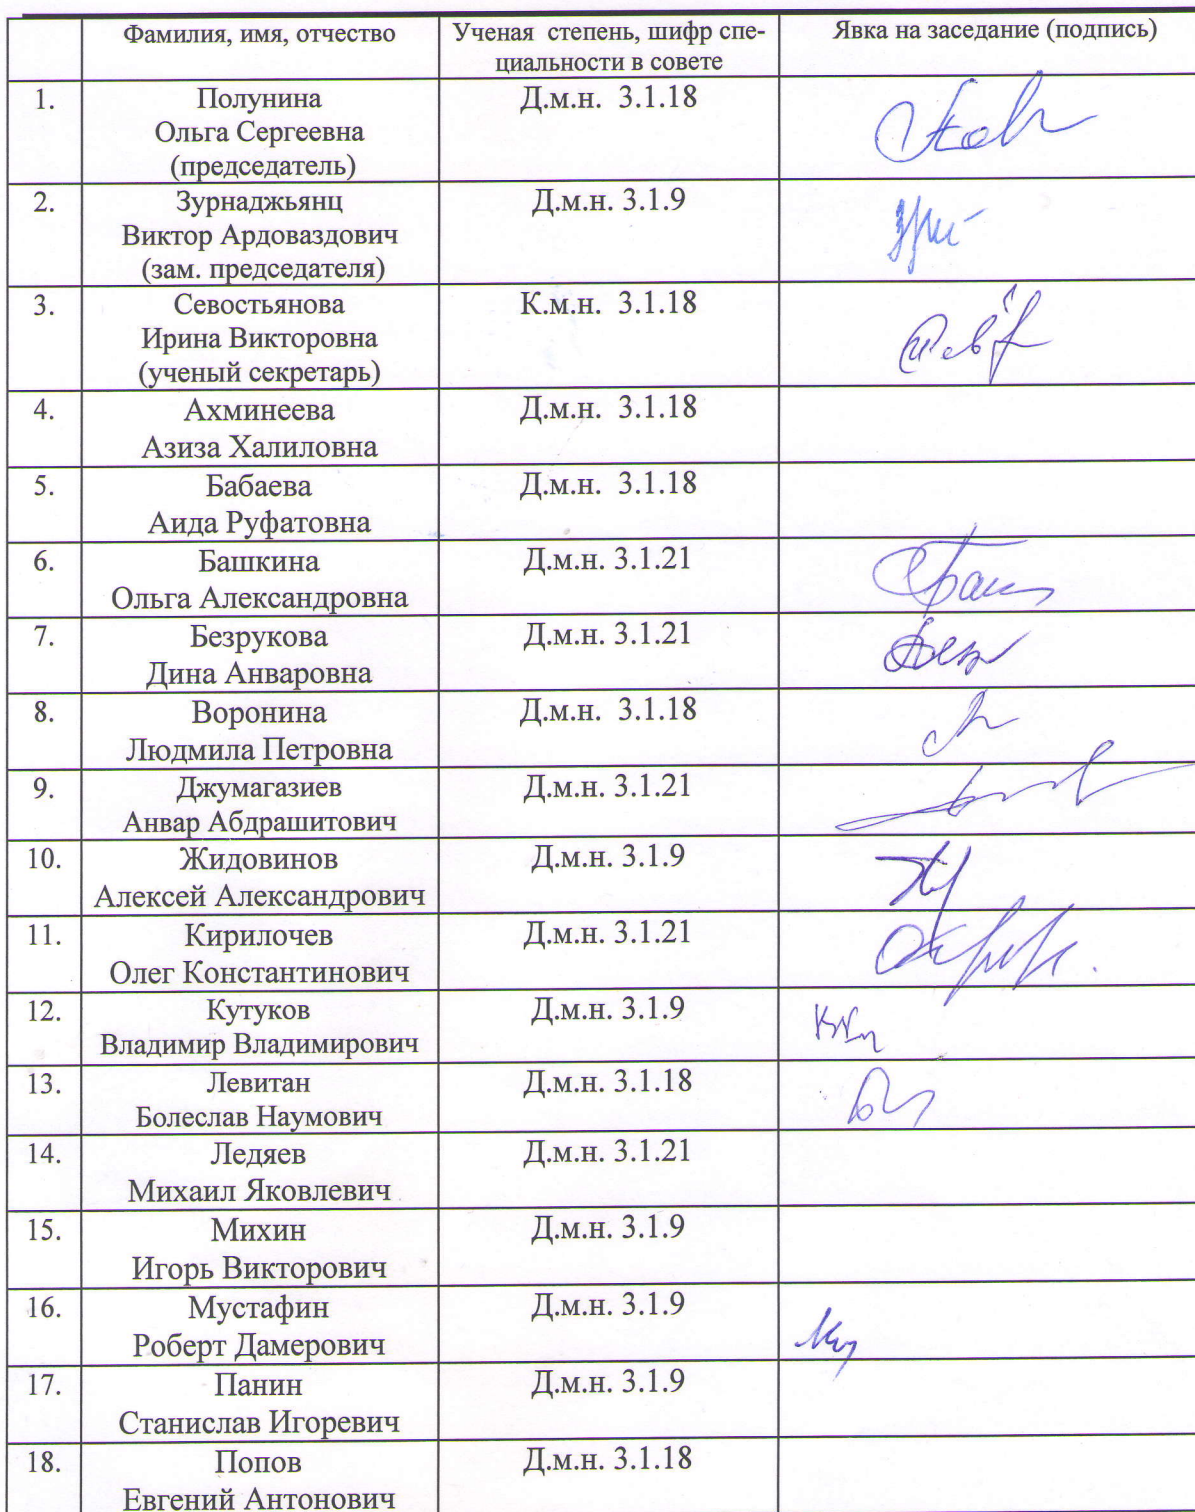 Фамилия, имя, отчество
Ученая степень, шифр спе-
циальности в совете
Явка на заседание (подпись)
1.
Полунина
Ольга Сергеевна
(председатель)
Д.м.н. 3.1.18
2.
Зурнаджьянц
Виктор Ардоваздович
(зам. председателя)
Д.м.н. 3.1.9
3.
Севостьянова
Ирина Викторовна
(ученый секретарь)
К.м.н. 3.1.18
4.
Ахминеева
Азиза Халиловна
Д.м.н. 3.1.18
5.
Бабаева
Аида Руфатовна
Д.м.н. 3.1.18
6.
Башкина
Ольга Александровна
Д.м.н. 3.1.21
7.
Безрукова
Дина Анваровна
Д.м.н. 3.1.21
8.
Воронина
Людмила Петровна
Д.м.н. 3.1.18
9.
Джумагазиев
Анвар Абдрашитович
Д.м.н. 3.1.21
10.
Жидовинов
Алексей Александрович
Д.м.н. 3.1.9
11.
Кирилочев
Олег Константинович
Д.м.н. 3.1.21
12.
Кутуков
Владимир Владимирович
Д.м.н. 3.1.9
13.
Левитан
Болеслав Наумович
Д.м.н. 3.1.18
14.
Ледяев
Михаил Яковлевич
Д.м.н. 3.1.21
15.
Михин
Игорь Викторович
Д.м.н. 3.1.9
16.
Мустафин
Роберт Дамерович
Д.м.н. 3.1.9
17.
Панин
Станислав Игоревич
Д.м.н. 3.1.9
18.
Попов
Евгений Антонович
Д.м.н. 3.1.18